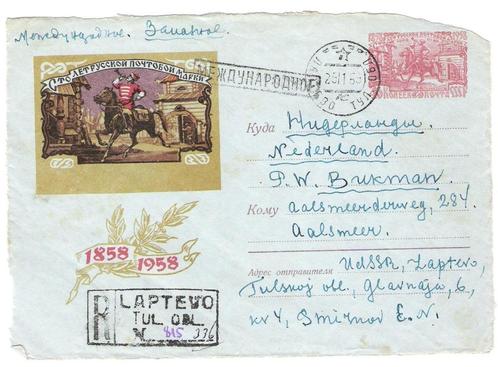 Международное. Заказное.
СТО ЛЕТ РУССКОЙ ПОЧТОВОЙ МАРКИ
МЕЖДУНАРОДНОЕ
1858 1958
Куда Нидерланды
Nederland.
P. W. Bukman
Кому Aalsmeerderweg, 284.
Aalsmeer.
Адрес отправителя UdSSR, Laptevo,
Tulskoj obl., Glavnaja, 6,
kv 4, Smirnov E. N.
1858
1958
R LAPTEVO
TUL. OBL.
N 815